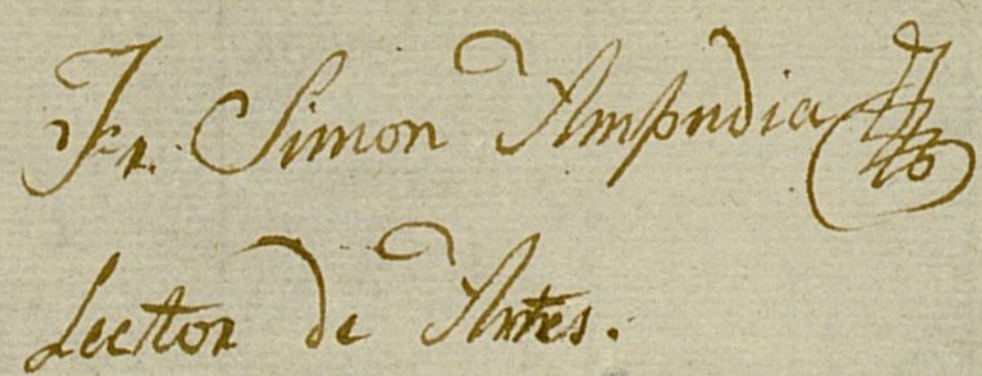 Fr. Simon Ampudia
Lector de Artes.